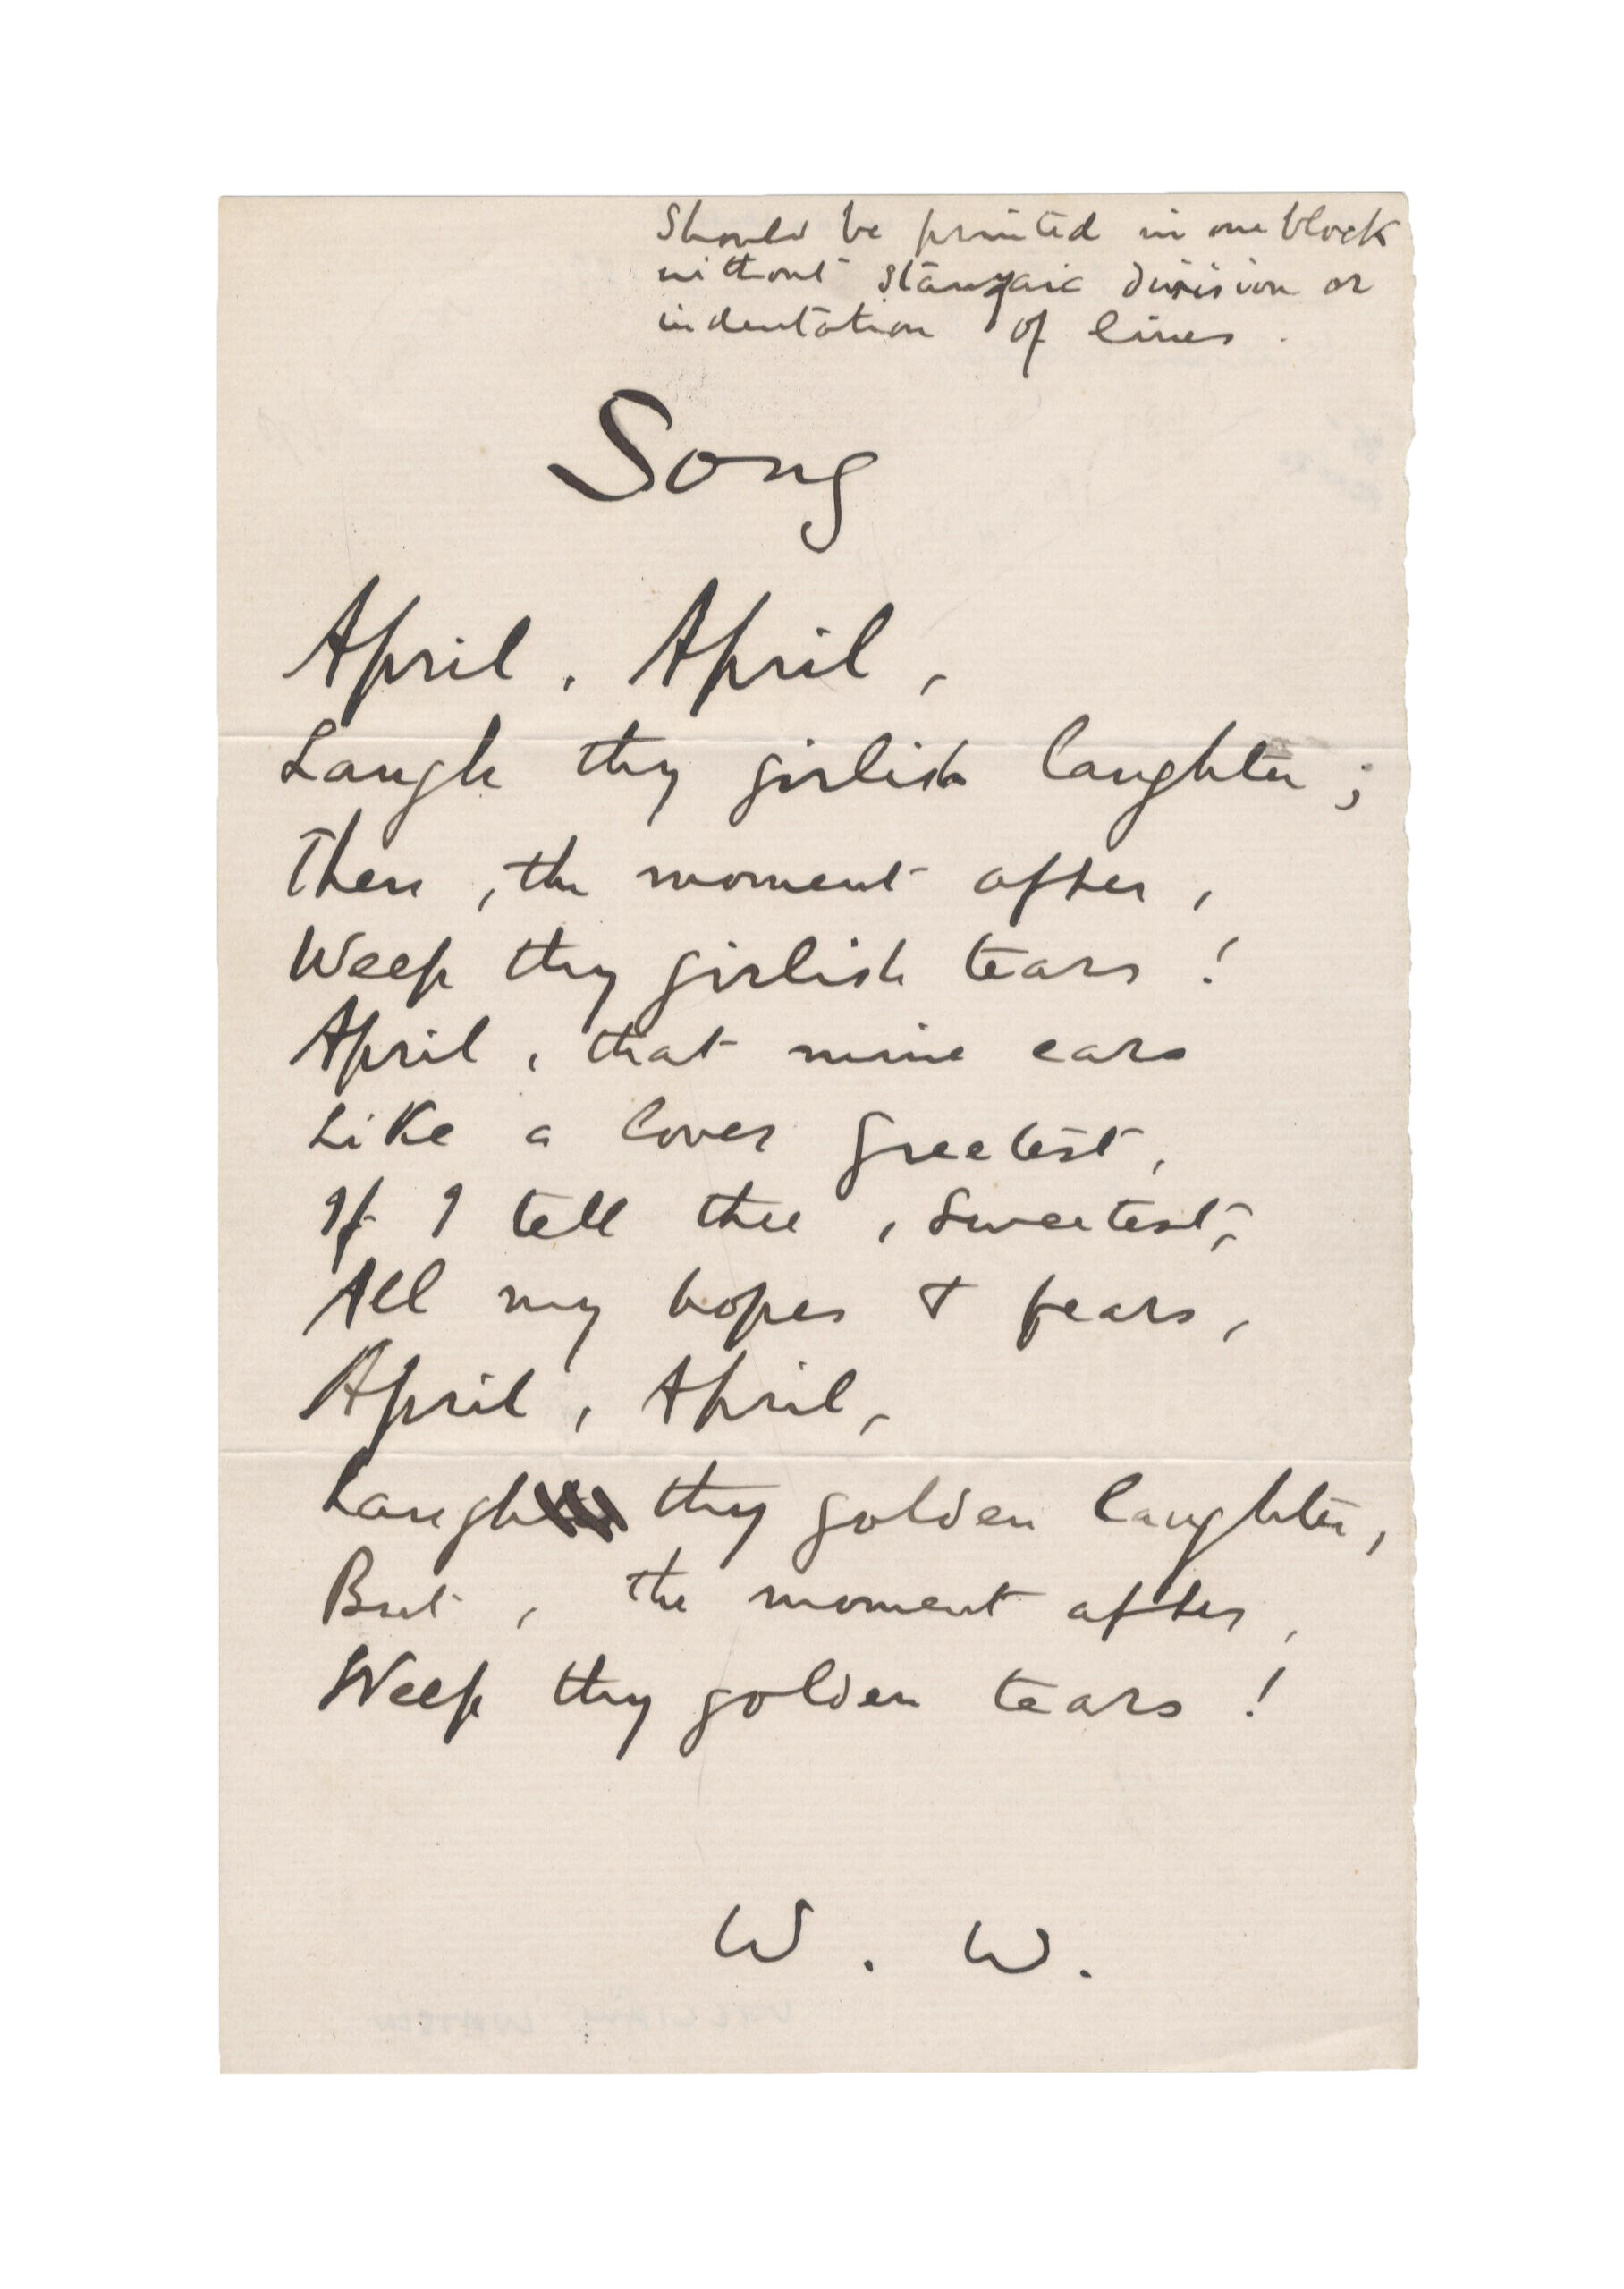 Should be printed in one block
without stanzaic division or
indentation of lines.
Song
April, April,
Laugh thy girlish laughter;
Then, the moment after,
Weep thy girlish tears!
April, that mine ears
Like a lover greetest,
If I tell thee, sweetest,
All my hopes & fears,
April, April,
Laugh thy golden laughter,
But, the moment after,
Weep thy golden tears!
W. W.